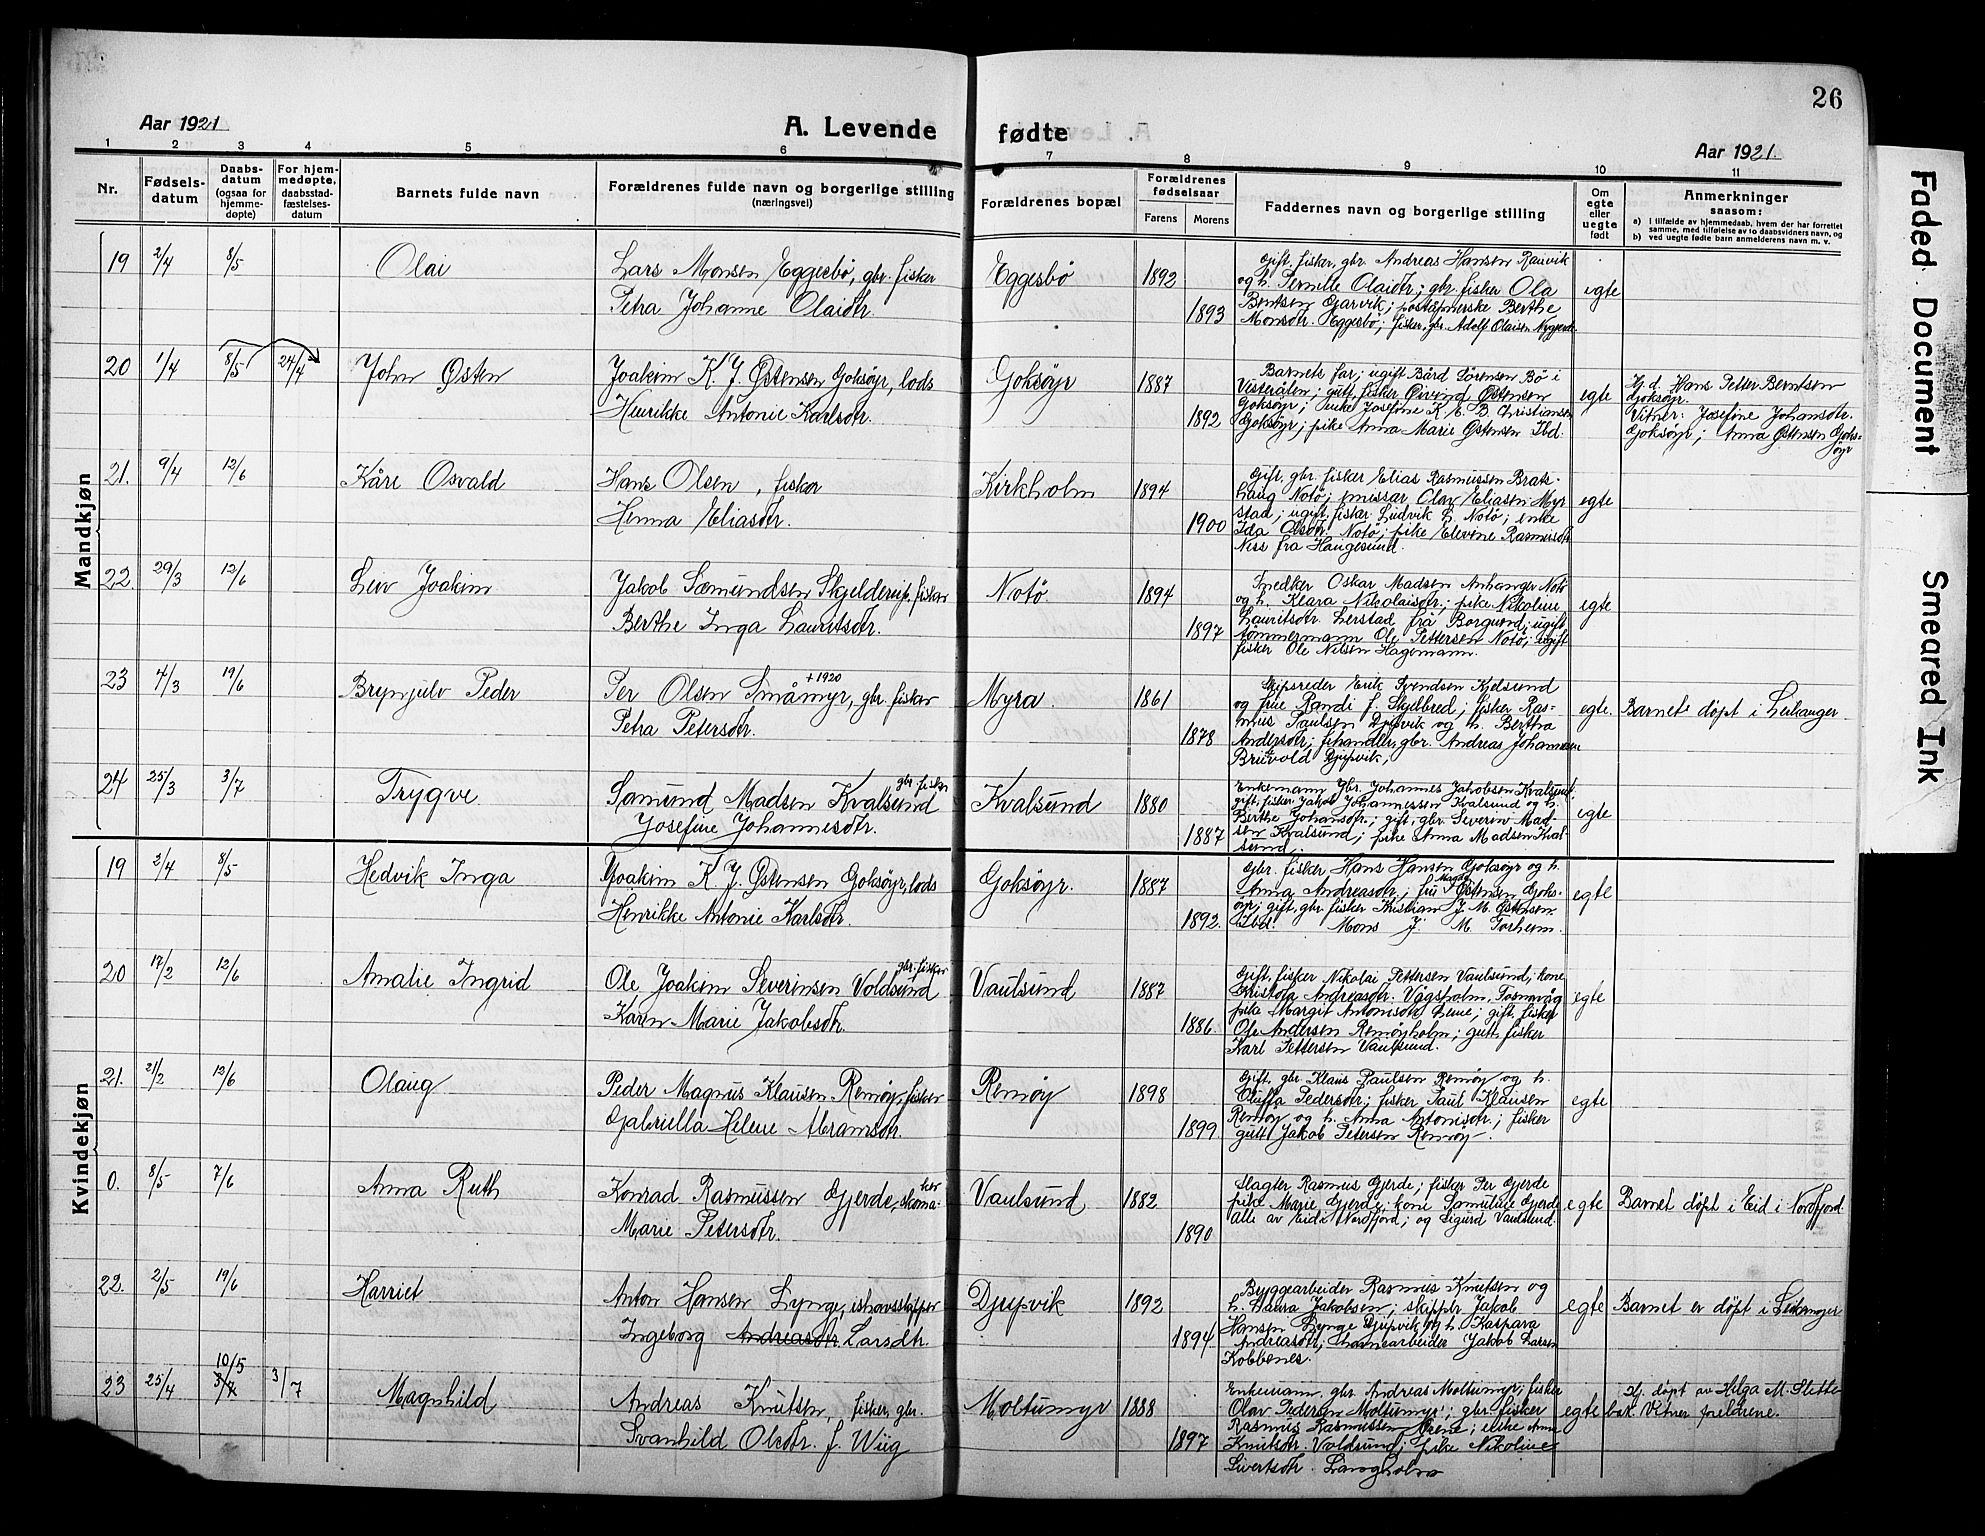 26
Aar 1921
A. Levende fødte
Aar 1921.
1 2 3 4 5 6 7 8 9 10 11
Nr.
Fødsels-
datum
Daabs-
datum
(ogsaa for
hjemme-
døpte)
For hjem-
medøpte,
daabsstad-
fæstelses-
datum
Barnets fulde navn
Forældrenes fulde navn og borgerlige stilling
(næringsvei)
Forældrenes bopæl
Forældrenes
fødselsaar
Farens Morens
Faddernes navn og borgerlige stilling
Om
egte
eller
uegte
født
Anmerkninger
saasom:
a) I tilfælde av hjemmedaab, hvem der har forrettet
samme, med tilføielse av to daabsvidners navn, og
b) ved uegte fødte barn anmelderens navn m. v.
Mandkjøn
19 2/4 8/5 Olai
Lars Monsen Eggesbö, gbr. fisker
Petra Johanne Olaidtr.
Eggesbö 1892 1893
Gift. fisker, gbr. Andreas Hansen Rauvik
og h. Pernille Olaidtr; gbr. fisker Ola
Bentsen Garvik; poståpnerske Berthe
Monsdtr. Eggesbö; fisker, gbr. Adolf Olaisen Nygjerde
egte
20 1/4 8/5 24/4 John Østen
Joakim K. J. Østensen Goksöyr, lods
Henrikke Antonie Karlsdtr.
Goksöyr 1887 1892
Barnets far; ugift Bård Sörensen Bö i
Vesterålen; gutt, fisker Öivind Østensen
Goksöyr; enke Josefine K. E. B. Christiansen
Goksöyr; pike Anna Marie Østensen Ibd.
egte
Hj.d. Hans Petter Berntsen
Goksöyr.
Vitner: Josefine Johansdtr.
Goksöyr; Anna Østensen Goks-
öyr
21. 9/4 12/6 Kåre Osvald
Hans Olsen, fisker
Henna Eliasdtr.
Kirkholm 1894 1900
Gift, gbr. fisker Elias Rasmussen Brats-
haug Notö; emissær Olav Eliasen Myr
stad; ugift. fisker Ludvik L. Notö; enke
Ida Olsdtr. Notö; pike Elevine Rasmusdtr
Niss fra Haugesund.
egte
22. 29/3 12/6 Leiv Joakim
Jakob Sæmundsen Skjelderup, fisker
Berthe Inga Lauritsdtr.
Notö. 1894 1897
Snedker Oskar Madsen Anhanger Notö
og h. Klara Nikolaisdtr; pike Nikoline
Lauritsdtr. Lerstad fra Borgund; ugift
tömmermann Ole Pettersen Notö; ugift
fisker Ole Nilsen Hagemann.
egte
23 4/3 19/6 Brynjulv Peder
Per Olsen Småmyr, +1920 gbr. fisker
Petra Petersdtr.
Myra. 1861 1878
Skipsreder Erik Svendsen Kjelsund
og frue Randi f. Skjelbred; fisker Ras-
mus Paulsen Djupvik og h. Bertha
Andersdtr; gbr. Andreas Johannesen
Bruvold Djupvik,
egte. Barnet döpt i Leikanger
24 25/3 3/7 Trygve
Sæmund Madsen Kvalsund gbr. fisker
Josefine Johannesdtr.
Kvalsund 1880 1887
Enkemann Gbr. Johannes Jakobsen Kvalsund;
gift, fisker Jakob Johannessen Kvalsund og h.
Berthe Johansdtr; gift, gbr. Severin Mad-
sen Kvalsund; pike Anna Madsen Kval
sund;
egte
Kvindekjøn
19 2/4 8/5 Hedvik Inga
Joakim K. J. Østensen Goksöyr, lods
Henrikke Antonie Karlsdtr.
Goksöyr. 1887 1892.
Gbr. fisker Hans Hansen Goksöyr og h.
Anna Andreasdtr; fru Magda Østensen Goks-
öyr; gift, gbr. fisker Kristian J. M. Østensen
Ibd. Mons J. M. Torheim.
egte
20 17/2 12/6 Amalie Ingrid
Ole Joakim Severinsen Voldsund gbr. fisker
Karen Marie Jakobsdtr.
Vaulsund 1887 1886.
Gift, fisker Nikolai Pettersen Vaulsund, kone
Kristofa Andreasdtr. Vågsholm, Fosnavåg
pike Margit Antonsdtr Leine; gift, fisker
Ole Andersen Remöyholm; gutt, fisker
Karl Pettersen Vaulsund.
egte
21. 21/2 12/6 Olaug
Peder Magnus Klausen Remöy, fisker
Gabriella Helene Abramsdtr.
Remöy 1898 1899
Gift, gbr Klaus Paulsen Remöy og h.
Oliffa Pedersdtr; fisker Paul Klausen
Remöy og h. Anna Antonisdtr.; fisker
gutt Jakob Petersen Remöy.
egte
0. 8/5 7/6 Anna Ruth
Konrad Rasmussen Gjerde, skoma-
ker
Marie Petersdtr.
Vaulsund 1882 1890
Slagter Rasmus Gjerde; fisker Per Gjerde
pike Marie Gjerde; kone Samuline Gjerde
alle av Eid i Nordfjord; og Sigurd Vaulsund.
egte Barnet döpt i Eid i Nordfjord.
22. 2/5 19/6 Harriet
Anton Hansen Lynge, ishavsskipper
Ingeborg Andreasdtr. Larsdtr.
Djupvik 1892 1894
Byggearbeider Rasmus Knutsen og
h. Laura Jakobsen; skipper Jakob
Hansen Lynge Djupvik og h. Kaspara
Andreasdtr; Jakob Larsen
Kobbenes.
egte Barnet er döpt i Leikanger
23 25/4 10/5 3/7 3/7 Magnhild
Andreas Knutsen, fisker, gbr.
Svanhild Olsdtr. f. Wiig
Moltumyr 1888 1897
Enkemann. gbr. Andreas Moltumyr; fisker
Olav Pedersen Moltumyr; gbr. fisker
Rasmus Rasmussen; enke Anne
Knutsdtr. Voldsund; pike Nikoline
Sivertsdtr. Langholm
egte
Hj. döpt av Helga M. Slette-
bak. Vitner foreldrene.
Faded Document
Smeared Ink